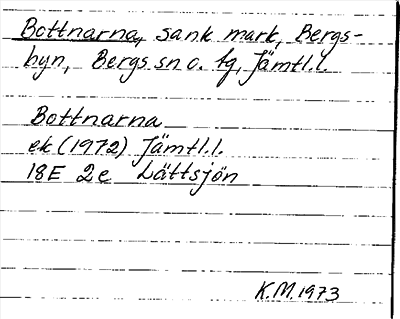 Bottnarna, sank mark, Bergs-
byn, Bergs sn o. tg, Jämtl.l.
Bottnarna
ek (1972) Jämtl.l.
18E 2e Lättsjön
K.M. 1973